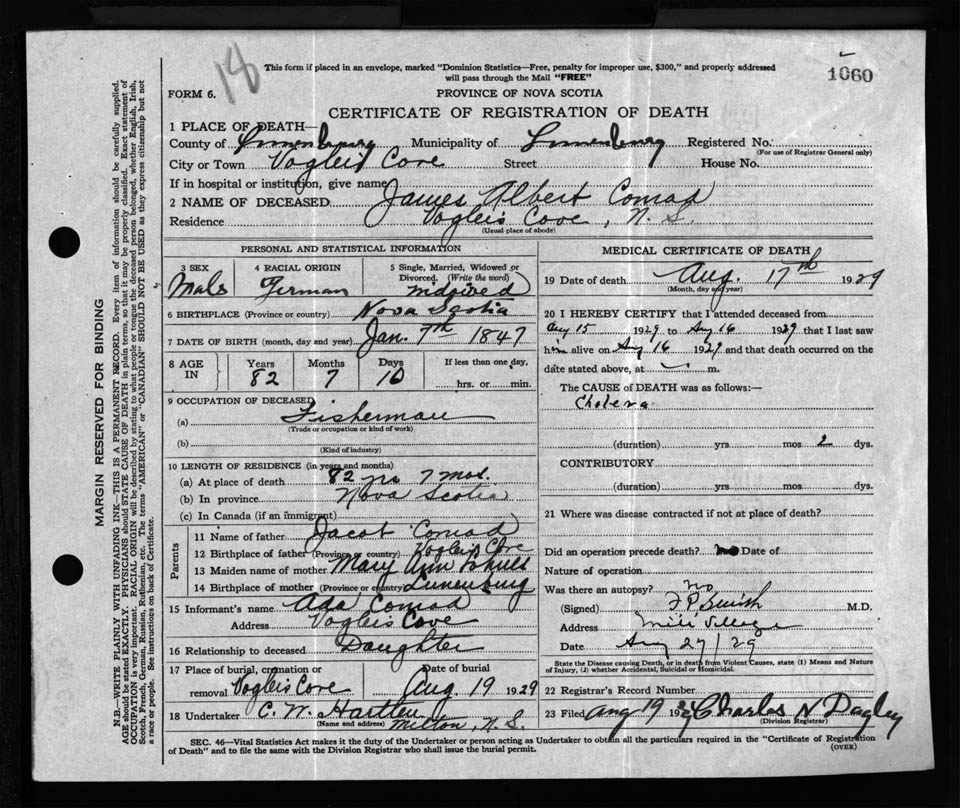 18
This form if placed in an envelope, marked "Dominion Statistics—Free, penalty for improper use, $300," and properly addressed
will pass through the Mail "FREE"
1060
FORM 6.
PROVINCE OF NOVA SCOTIA
CERTIFICATE OF REGISTRATION OF DEATH
1 PLACE OF DEATH—
County of Lunenburg Municipality of Lunenburg Registered No.
(For use of Registrar General only)
City or Town Vogleis Cove Street House No.
If in hospital or institution, give name
2 NAME OF DECEASED James Albert Conrad
Residence Vogleis Cove, N.S.
(Usual place of abode)
PERSONAL AND STATISTICAL INFORMATION
3 SEX 4 RACIAL ORIGIN 5 Single, Married, Widowed or
Divorced. (Write the word)
Male German
6 BIRTHPLACE (Province or country) Nova Scotia
7 DATE OF BIRTH (month, day and year) Jan. 7th 1847
8 AGE IN Years Months Days If less than one day,
82 7 10 hrs. or min.
9 OCCUPATION OF DECEASED
(a) Fisherman
(Trade or occupation or kind of work)
(b)
(Kind of industry)
10 LENGTH OF RESIDENCE (in years and months)
(a) At place of death 82 yrs 7 mos.
(b) In province Nova Scotia
(c) In Canada (if an immigrant)
Parents
11 Name of father Jacob Conrad
12 Birthplace of father (Province or country) Vogleis Cove
13 Maiden name of mother Mary Ann
14 Birthplace of mother (Province or country) Lunenburg
15 Informant's name Ada Conrad
Address Vogleis Cove
16 Relationship to deceased Daughter
17 Place of burial, cremation or Date of burial
removal Vogleis Cove Aug. 19 1929
18 Undertaker C. W. Hartlen
(Name and address) Milton, N.S.
MEDICAL CERTIFICATE OF DEATH
19 Date of death Aug. 17th 1929
(Month, day and year)
20 I HEREBY CERTIFY that I attended deceased from
Aug 15 1929 to Aug 16 1929 that I last saw
him alive on Aug 16 1929 and that death occurred on the
date stated above, at m.
The CAUSE of DEATH was as follows:—
Cholera
(duration) yrs mos 2 dys.
CONTRIBUTORY
(duration) yrs. mos. dys.
21 Where was disease contracted if not at place of death?
Did an operation precede death? no Date of
Nature of operation
Was there an autopsy? no
(Signed) F P Smith M.D.
Address Mill Village
Date Aug 27/29
State the Disease causing Death, or in death from Violent Causes, state (1) Means and Nature
of Injury, (2) whether Accidental, Suicidal or Homicidal.
22 Registrar's Record Number
23 Filed Aug 19 1929 Charles N Dagley
(Division Registrar)
SEC. 46—Vital Statistics Act makes it the duty of the Undertaker or person acting as Undertaker to obtain all the particulars required in the "Certificate of Registration
of Death" and to file the same with the Division Registrar who shall issue the burial permit.
(OVER)
MARGIN RESERVED FOR BINDING
N.B.—WRITE PLAINLY WITH UNFADING INK—THIS IS A PERMANENT RECORD. Every item of information should be carefully supplied.
AGE should be stated EXACTLY. PHYSICIANS should STATE CAUSE OF DEATH in plain terms, so that it may be properly classified. Exact statement of
OCCUPATION is very important. RACIAL ORIGIN will be described by stating to what people or tongue the deceased person belonged, whether English, Irish,
Scotch, French, German, Russian, Ruthenian, etc. The terms "AMERICAN" or "CANADIAN" SHOULD NOT BE USED as they express citizenship but not
a race or people. See instructions on back of Certificate.